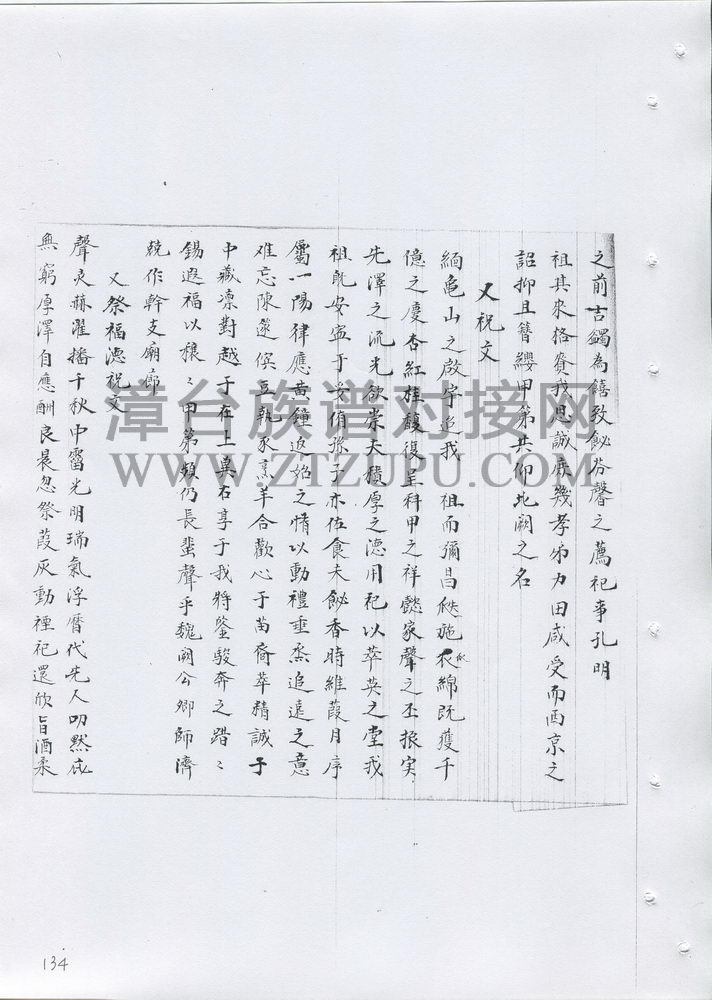 之前吉蠲為饎致飶芬馨之薦祀事孔明
祖其來格賚我思誠庶幾孝弟力田咸受而西京之
詔抑且簪纓甲第共仰北闕之名
又祝文
緬龜山之啟宇追我 祖而彌昌 施 綿既獲千
億之慶杏紅桂馥復呈科甲之祥懿家聲之丕振实
先澤之流光欲崇夫積厚之德用祀以萃英之堂我
祖既安寍于 侑孫子亦佐食夫飶香時維葭月序
屬一陽律應黄鐘返始之情以動禮垂烝追遠之意
难忘陳籩俟豆執豕烹羊合歡心于苗裔萃精誠于
中藏凛對越于在上奠右享于我將鉴駿奔之蹌〻
錫遐福以穰〻甲第頻仍長蜚聲乎魏闕公卿師濟
兢作幹支廟廊
又祭福德祝文
聲灵赫濯播千秋中霤光明瑞氣浮曆代先人叨默庇
無窮厚澤自應酬良晨忽祭葭灰動禋祀還欣旨酒柔
漳台族谱对接网
WWW.ZTZUPU.COM
134